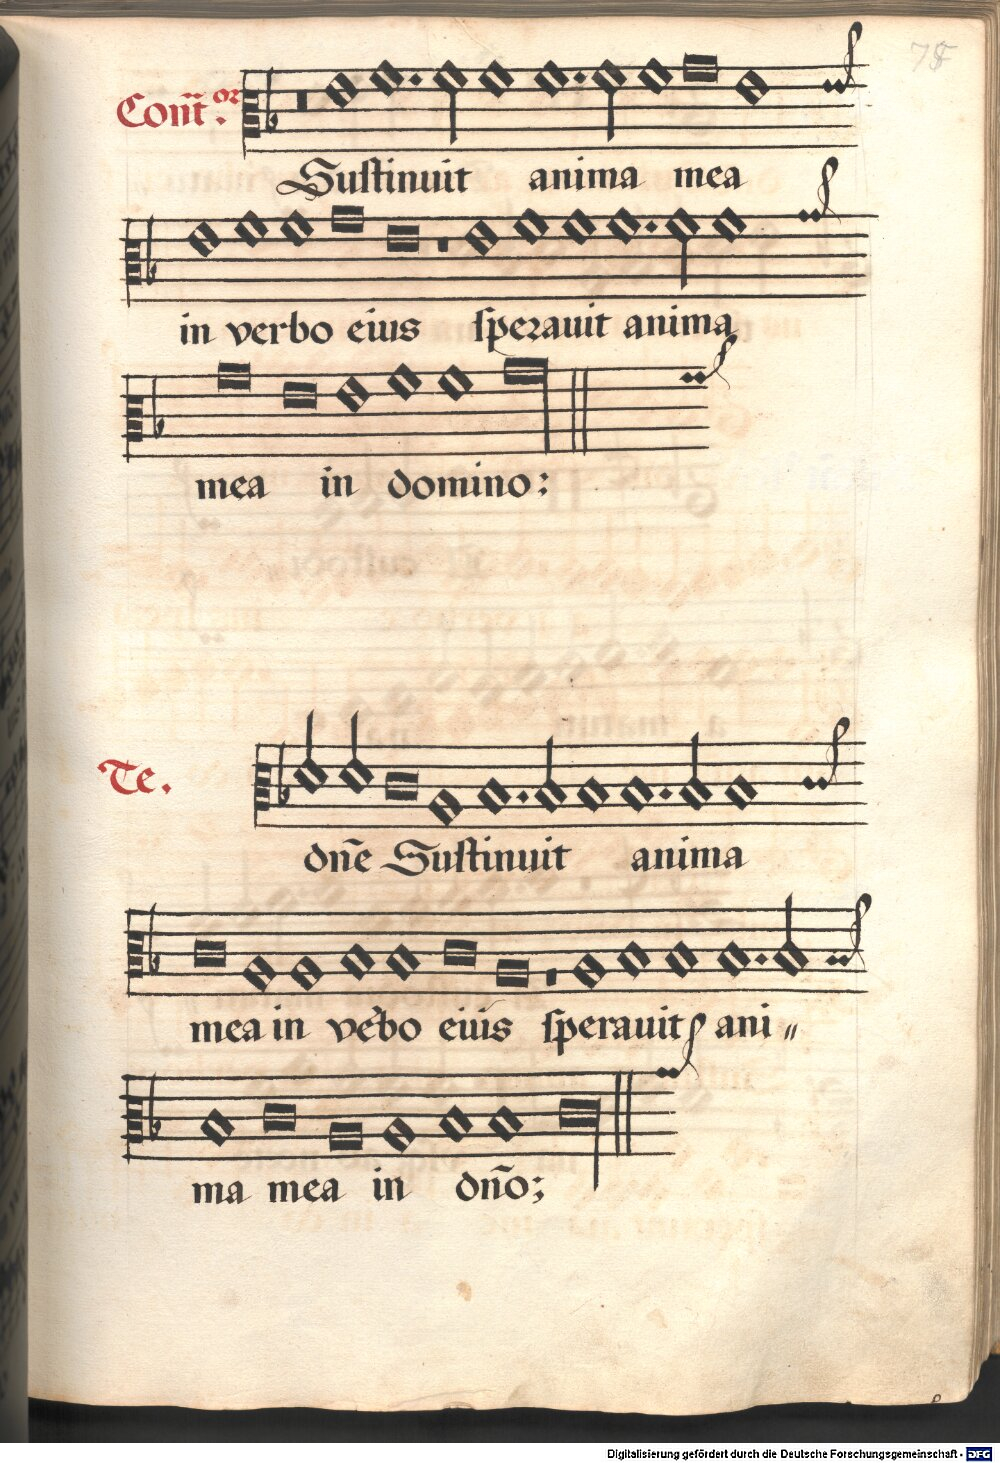 75
Cont̄or.
Sustinuit anima mea
in verbo eius sperauit anima
mea in domino:
Te.
dn̄e Sustinuit anima
mea in v̉bo eius sperauit ani〃
ma mea in dn̄o:
Digitalisierung gefördert durch die Deutsche Forschungsgemeinschaft - DFG